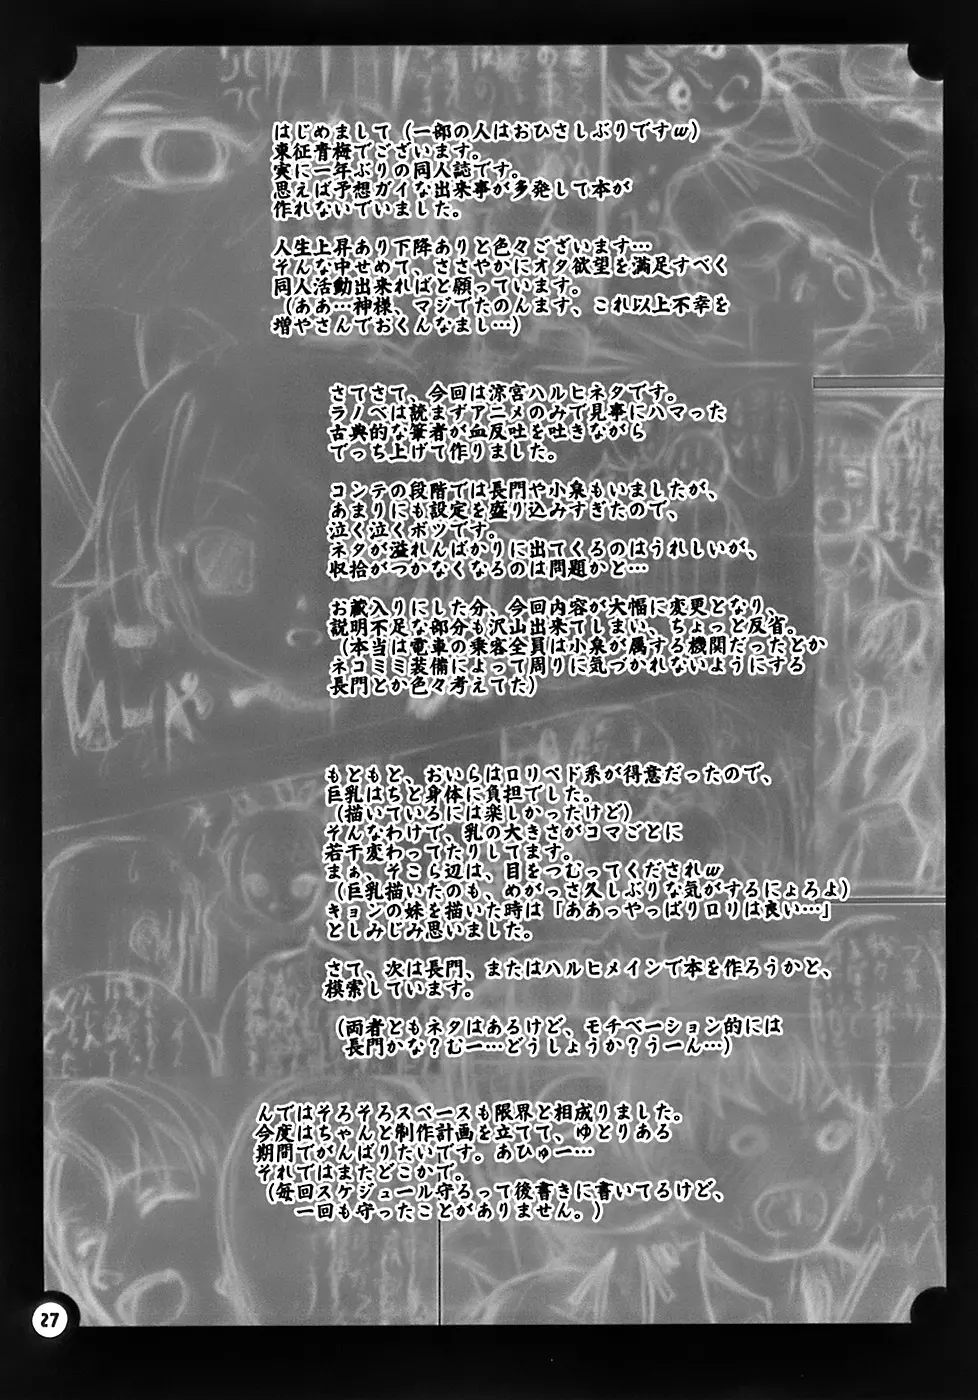 はじめまして（一部の人はおひさしぶりですw）
東征青梅でございます。
実に一年ぶりの同人誌です。
思えば予想ガイな出来事が多発して本が
作れないでいました。
人生上昇あり下降ありと色々ございます…
そんな中せめて、ささやかにオタ欲望を満足すべく
同人活動出来ればと願っています。
（ああ…神様、マジでたのんます、これ以上不幸を
増やさんでおくんなまし…）
さてさて、今回は涼宮ハルヒネタです。
ラノベは読まずアニメのみで見事にハマった
古典的な筆者が血反吐を吐きながら
でっち上げて作りました。
コンテの段階では長門や小泉もいましたが、
あまりにも設定を盛り込みすぎたので、
泣く泣くボツです。
ネタが溢れんばかりに出てくるのはうれしいが、
収拾がつかなくなるのは問題かと…
お蔵入りにした分、今回内容が大幅に変更となり、
説明不足な部分も沢山出来てしまい、ちょっと反省。
（本当は電車の乗客全員は小泉が属する機関だったとか
ネコミミ装備によって周りに気づかれないようにする
長門とか色々考えてた）
もともと、おいらはロリペド系が得意だったので、
巨乳はちと身体に負担でした。
（描いているには楽しかったけど）
そんなわけで、乳の大きさがコマごとに
若干変わってたりしてます。
まぁ、そこら辺は、目をつむってくだされw
（巨乳描いたのも、めがっさ久しぶりな気がするにょろよ）
キョンの妹を描いた時は「ああっやっぱりロリは良い…」
としみじみ思いました。
さて、次は長門、またはハルヒメインで本を作ろうかと、
模索しています。
（両者ともネタはあるけど、モチベーション的には
長門かな？むー…どうしょうか？うーん…）
んではそろそろスペースも限界と相成りました。
今度はちゃんと制作計画を立てて、ゆとりある
期間でがんばりたいです。あひゅー…
それではまたどこかで。
（毎回スケジュール守ろって後書きに書いてるけど、
一回も守ったことがありません。）
27